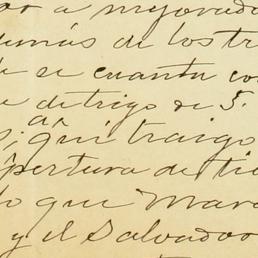 a mejorada
demás de los tr
se cuenta co
de trigo de 5.
a
qui traigo
pertura de ti
que Mar
y el Salvador